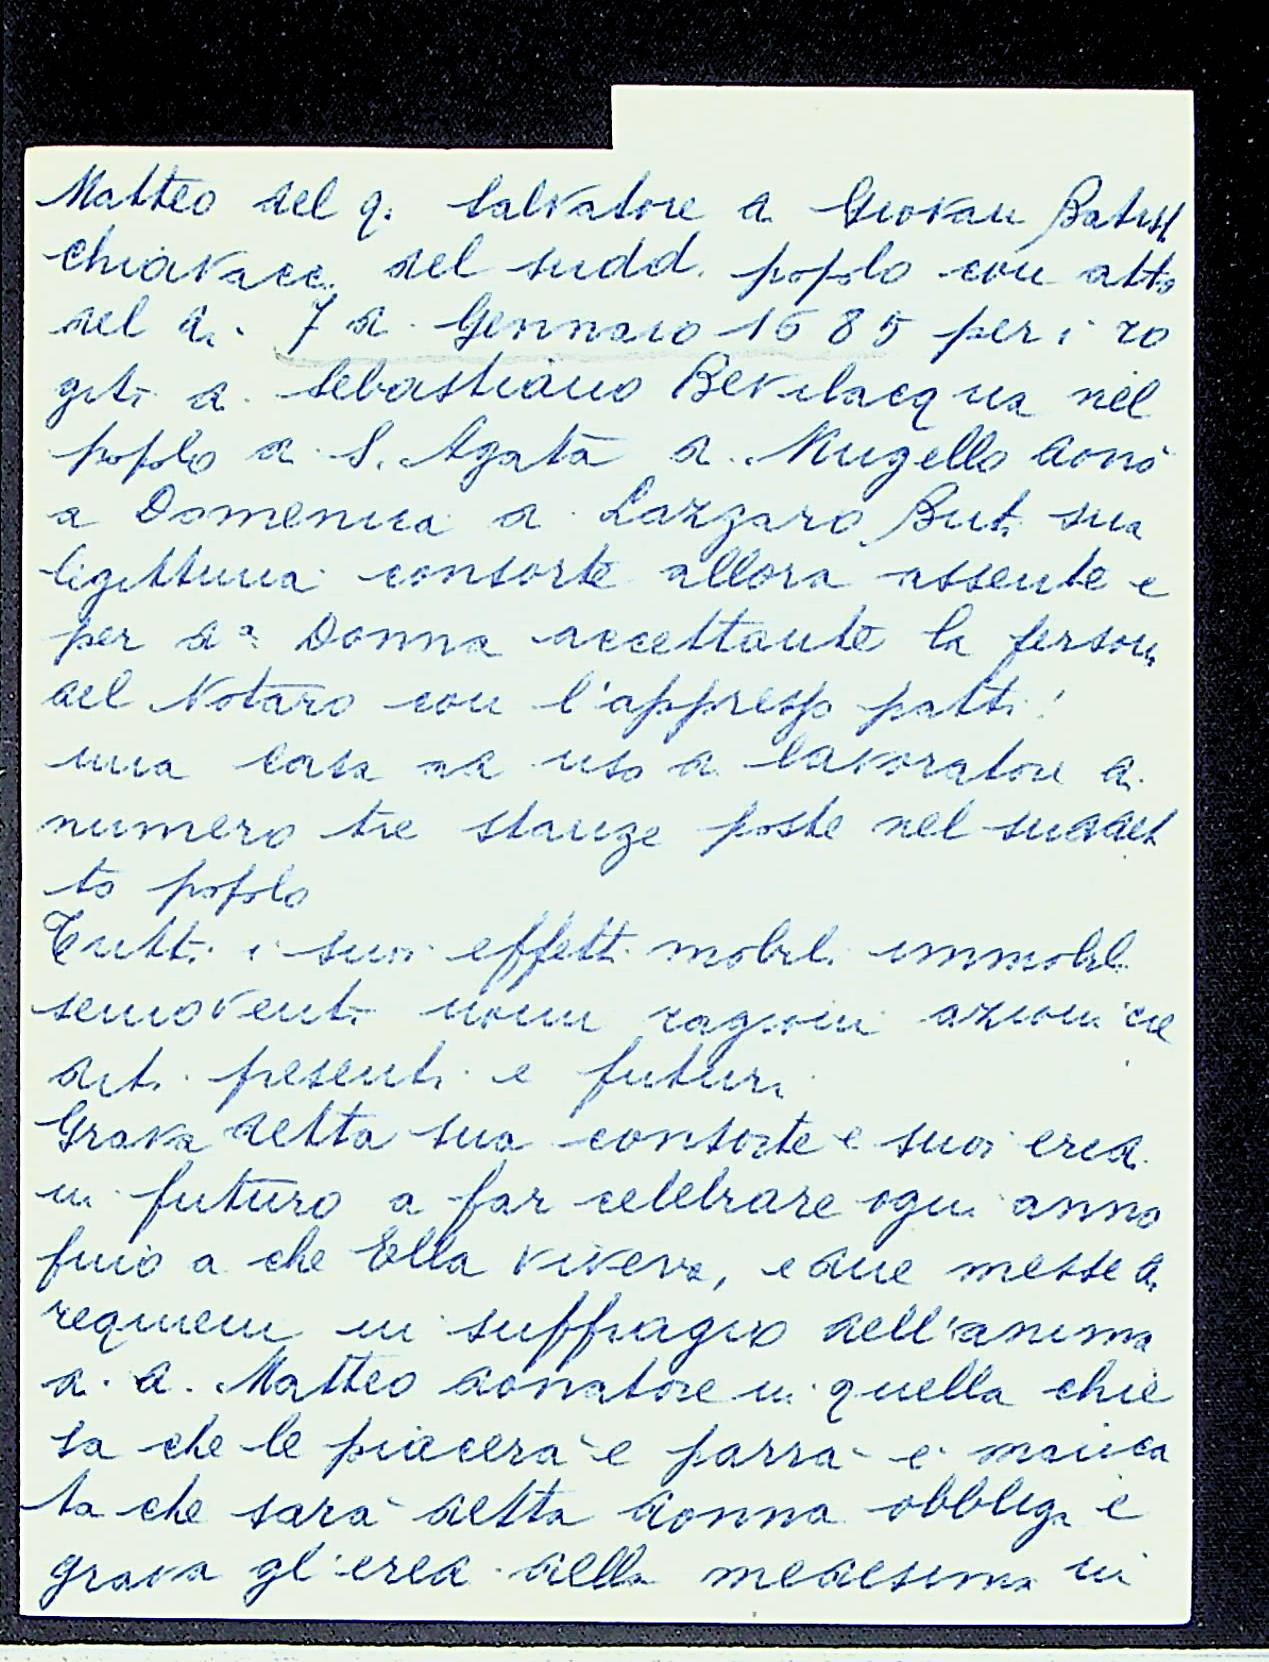 Matteo del q. Salvatore di Giovan Batist
Chiavacci del sudd. popolo con atto
del di. 7 di Gennaio 1685 per i ro
giti di Sebastiano Bevilacqua nel
popolo di S. Agata di Mugello donò
a Domenica di Lazzaro Buti sua
ligittima consorte allora assente e
per dª Donna accettante la person
del Notaro con l'appresso patti:
una casa ad uso di lavoratore di
numero tre stanze poste nel suddet
to popolo
Tutti i suoi effetti mobili immobili
semoventi nomi ragioni azioni cre
diti presenti e futuri
Grava detta sua consorte e suoi eredi
in futuro a far celebrare ogni anno
fino a che Ella viverà, e due messe di
requiem in suffragio dell'anima
di d. Matteo donatore in quella chie
sa che le piacerà e parrà e manca
ta che sarà detta donna obbliga e
grava gl'eredi della medesima in